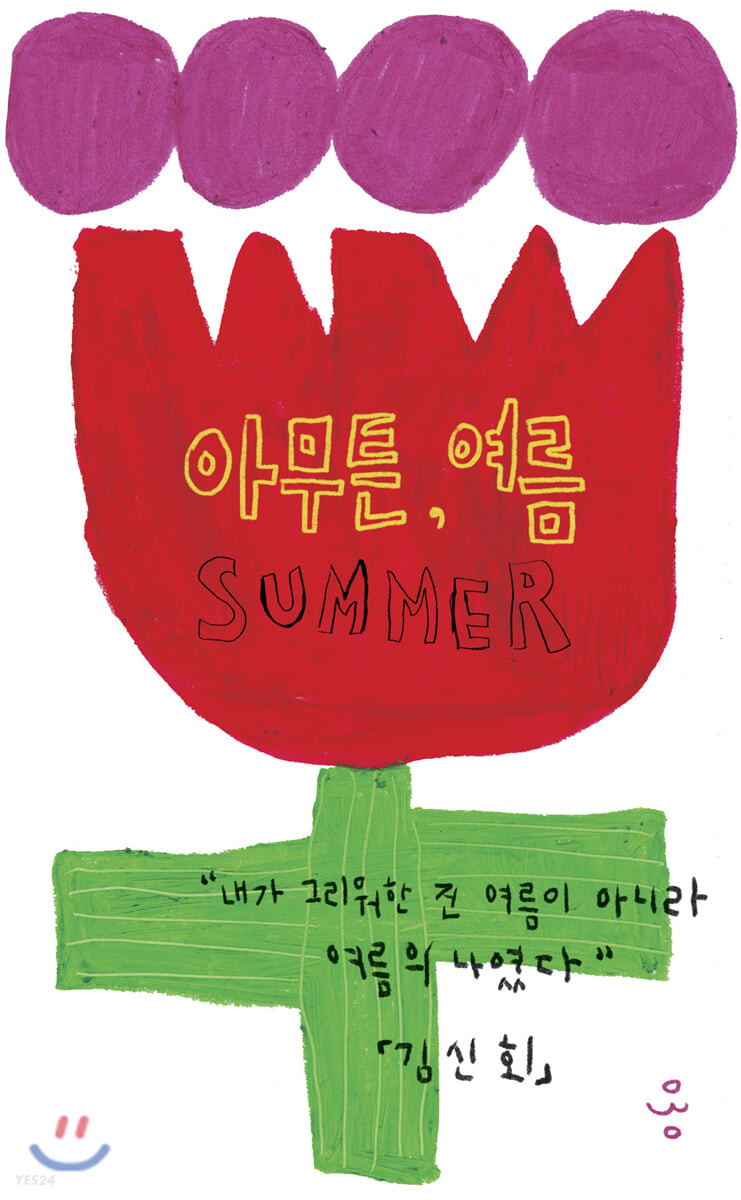 아무튼, 여름
SUMMER
"내가 그리워한 건 여름이 아니라
여름의 나였다"
「김신회」
030
YES24